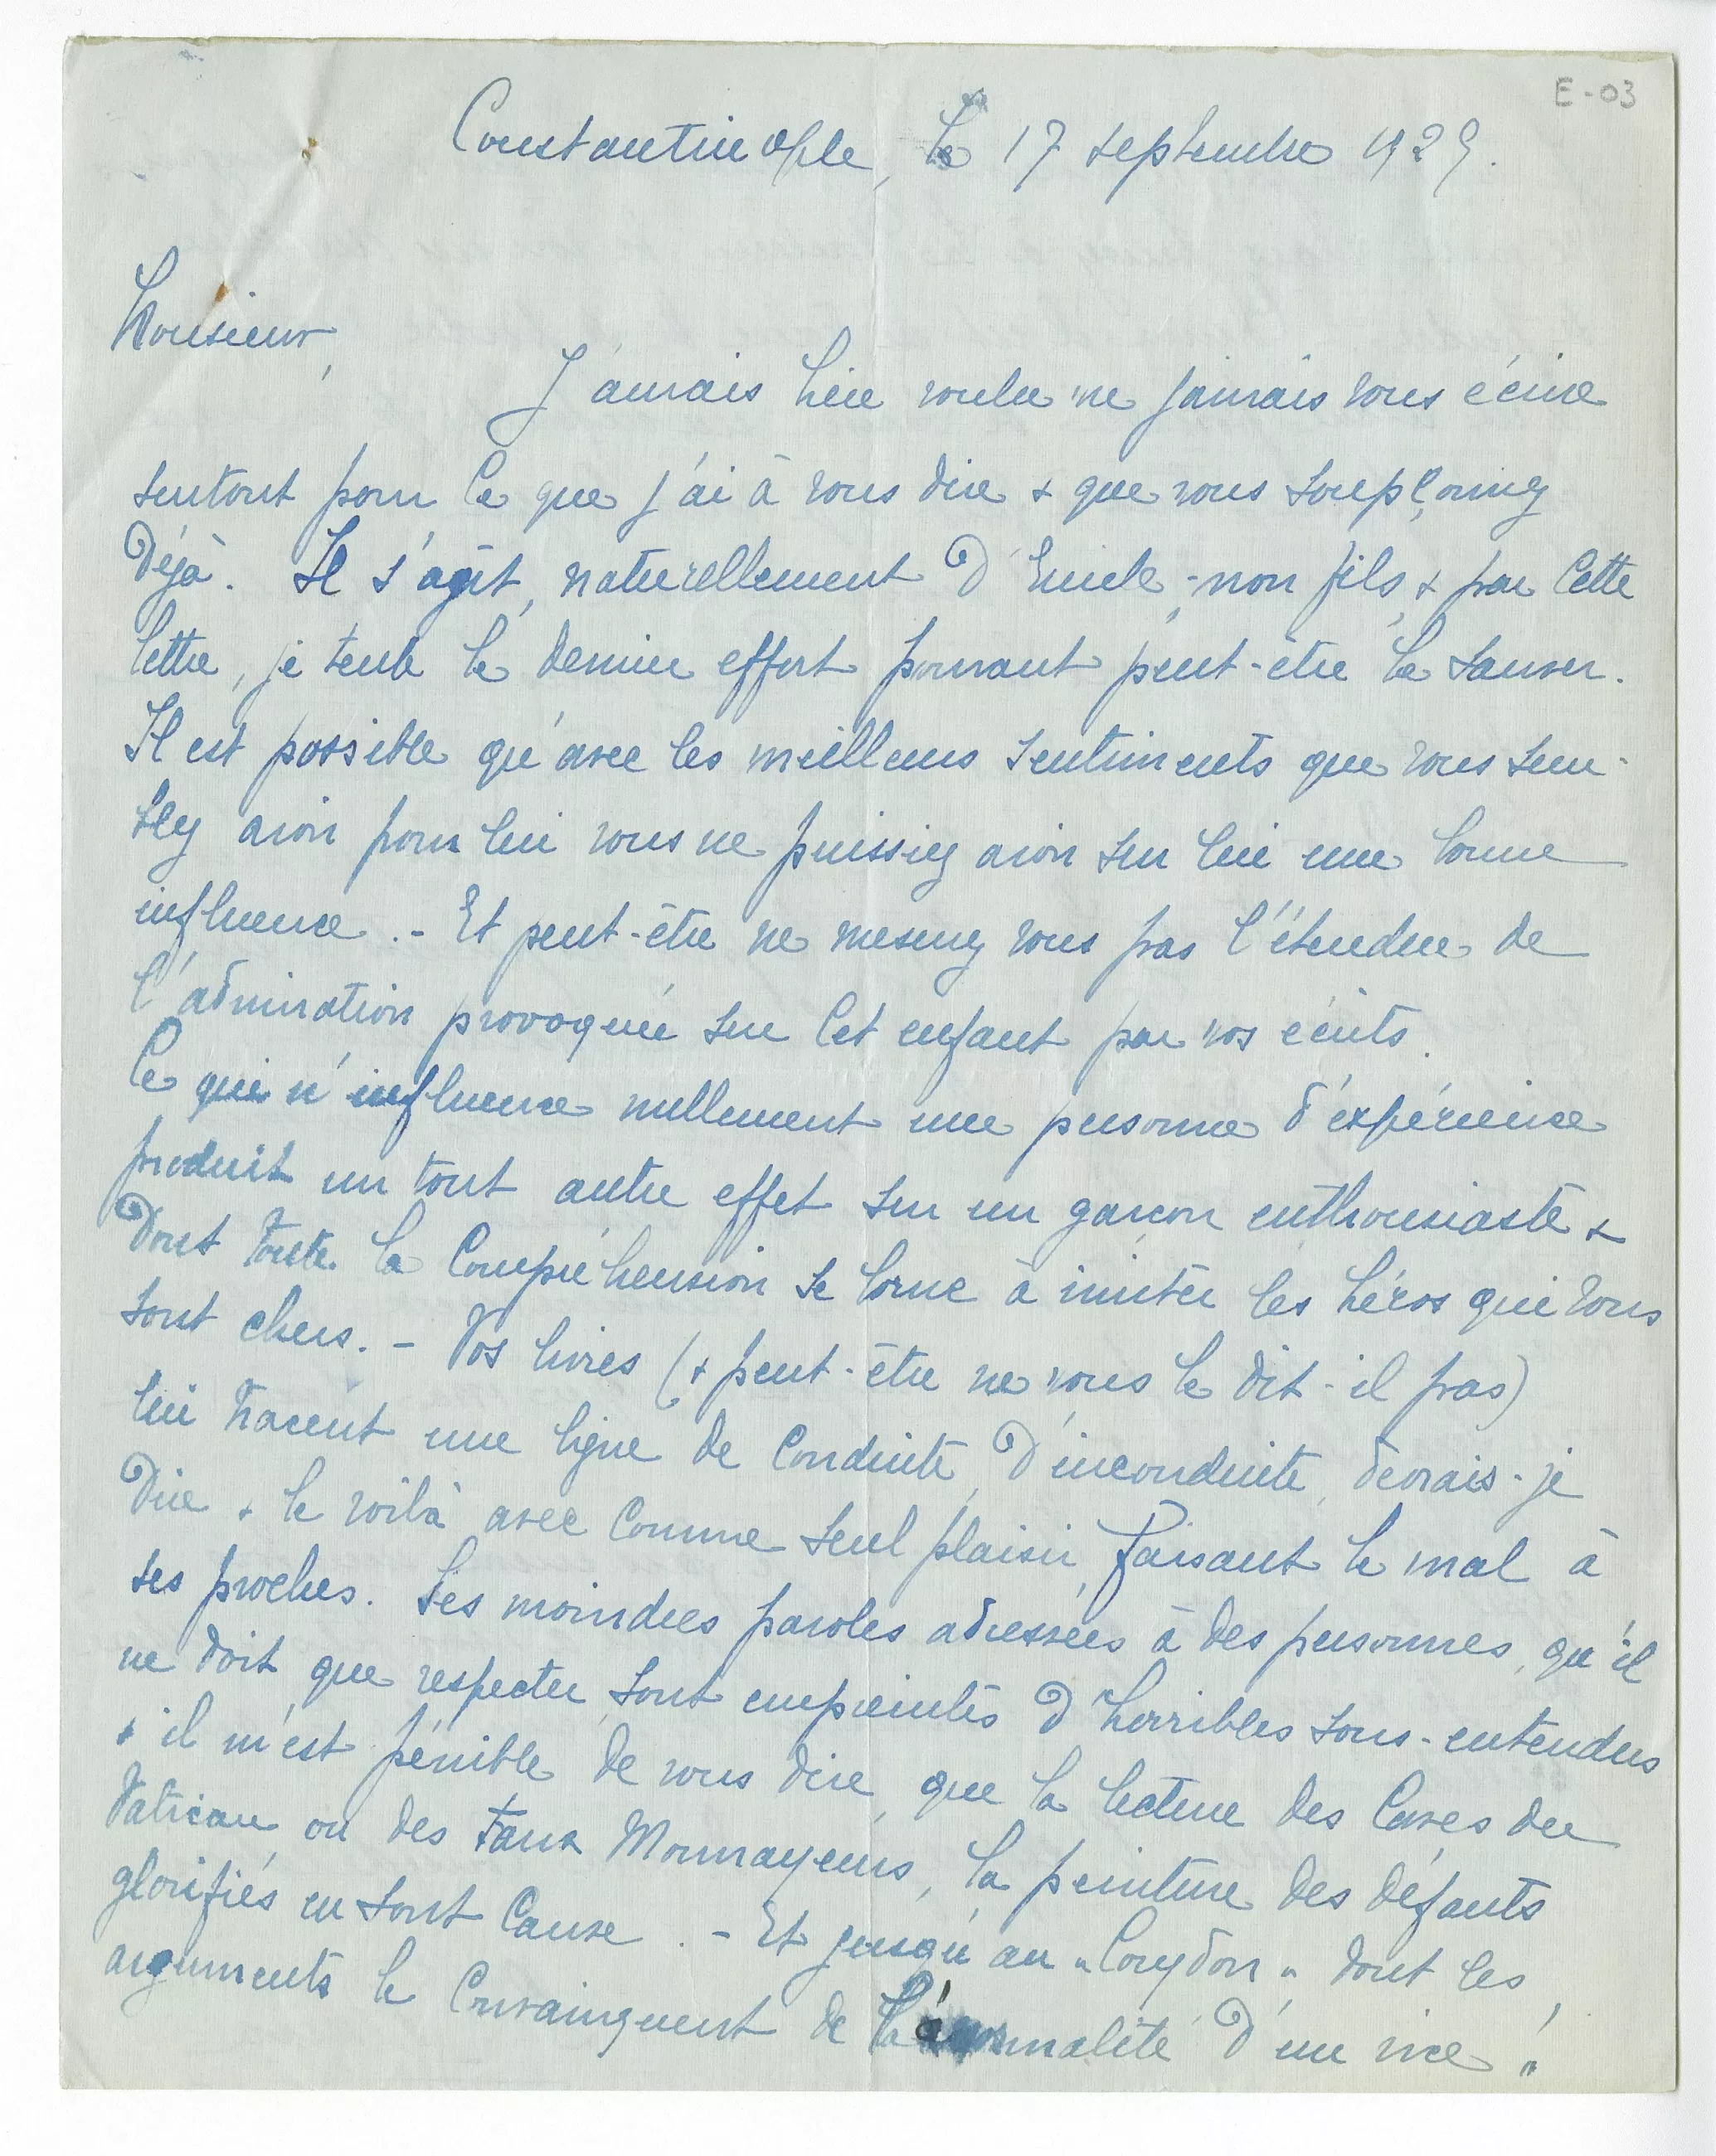 E-03
Constantinople, le 17 septembre 1929.
Monsieur,
J'aurais bien voulu ne jamais vous écrire
surtout pour ce que j'ai à vous dire & que vous soupçonnez
déjà. Il s'agit, naturellement d'Emile, mon fils, & par cette
lettre, je tente le dernier effort pouvant peut-être le sauver.
Il est possible qu'avec les meilleurs sentiments que vous sem-
blez avoir pour lui vous ne puissiez avoir sur lui une bonne
influence. - Et peut-être ne mesurez vous pas l'étendue de
l'admiration provoquée sur cet enfant par vos écrits.
Ce qui n'influence nullement une personne d'expérience
produit un tout autre effet sur un garçon enthousiaste &
dont toute la compréhension se borne à imiter les héros qui vous
sont chers. - Vos livres (& peut-être ne vous le dit-il pas)
lui tracent une ligne de conduite, d'inconduite, devrais-je
dire & le voilà avec comme seul plaisir, faisant le mal à
ses proches. Ses moindres paroles adressées à des personnes, qu'il
ne doit que respecter, sont empreintes d'horribles sous-entendus
& il m'est pénible de vous dire, que la lecture des Caves du
Vatican, ou des Faux Monnayeurs, la peinture des défauts
glorifiés en sont cause. - Et jusqu'au "Corydon" dont les
arguments le convainquent de la normalité d'un vice!